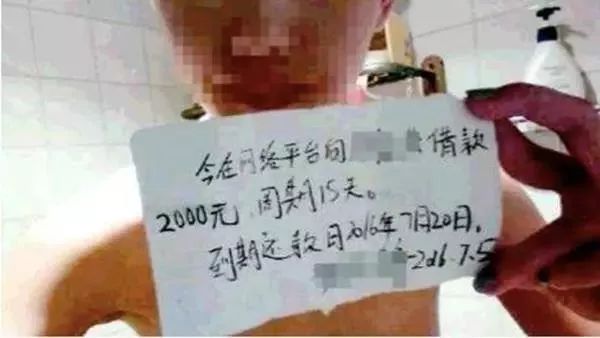 今在网络平台向 借款
2000元,周期15天。
到期还款日2016年7月20日。
-2016.7.5